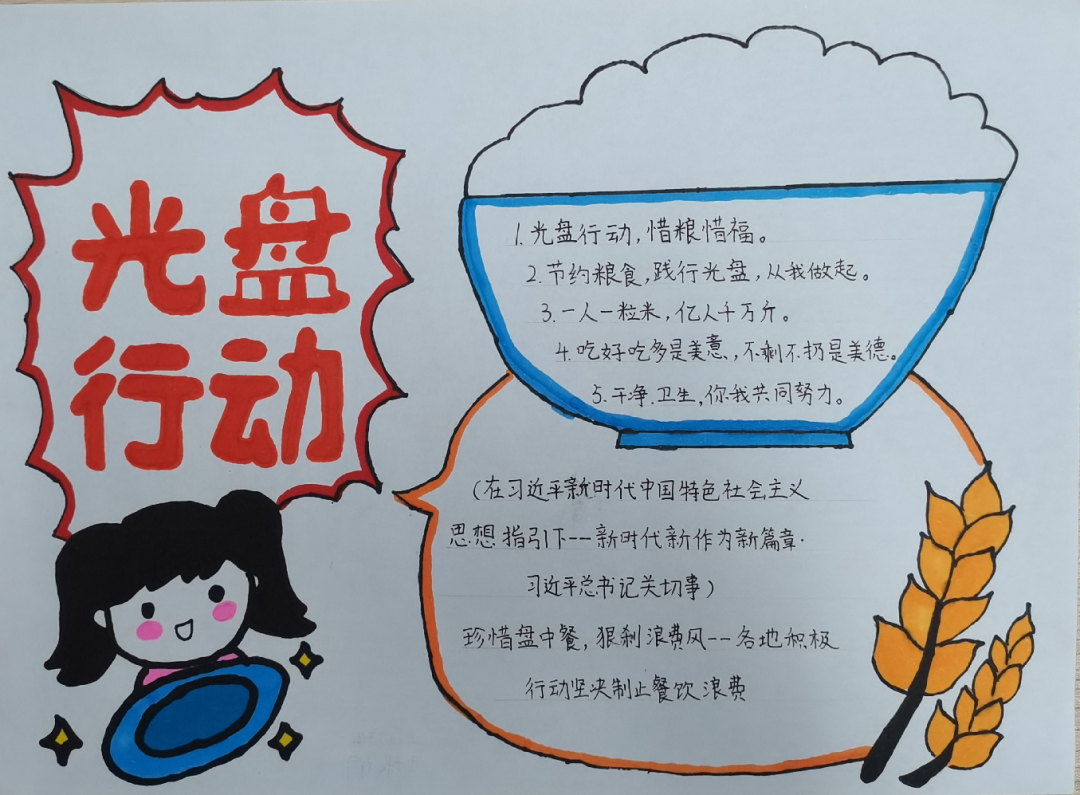 光盘
行动
1.光盘行动,惜粮惜福。
2.节约粮食,践行光盘,从我做起。
3.一人一粒米,亿人千万斤。
4.吃好吃多是美意,不剩不扔是美德。
5.干净卫生,你我共同努力。
(在习近平新时代中国特色社会主义
思想指引下--新时代新作为新篇章·
习近平总书记关切事)
珍惜盘中餐,狠刹浪费风--各地积极
行动坚决制止餐饮浪费